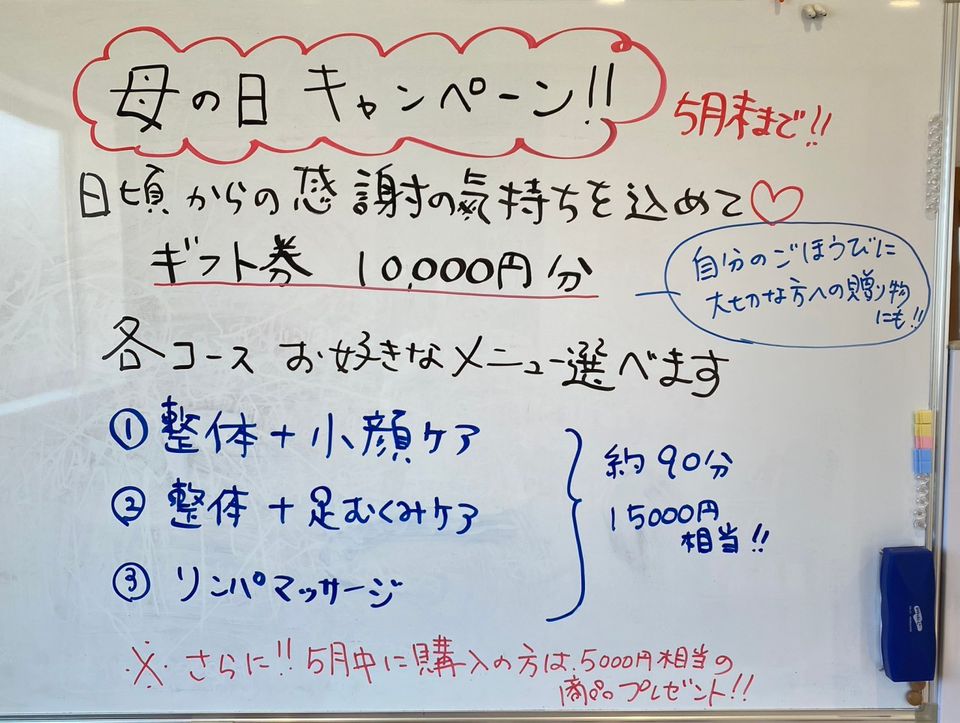 母の日 キャンペーン!!
5月末まで!!
日頃からの感謝の気持ちを込めて♡
ギフト券 10,000円分
自分のごほうびに
大切な方への贈り物
にも!!
各コース お好きなメニュー選べます
① 整体 + 小顔ケア
② 整体 + 足むくみケア
③ リンパマッサージ
約90分
15000円
相当!!
※ さらに!! 5月中に購入の方は 5000円相当の
商品プレゼント!!